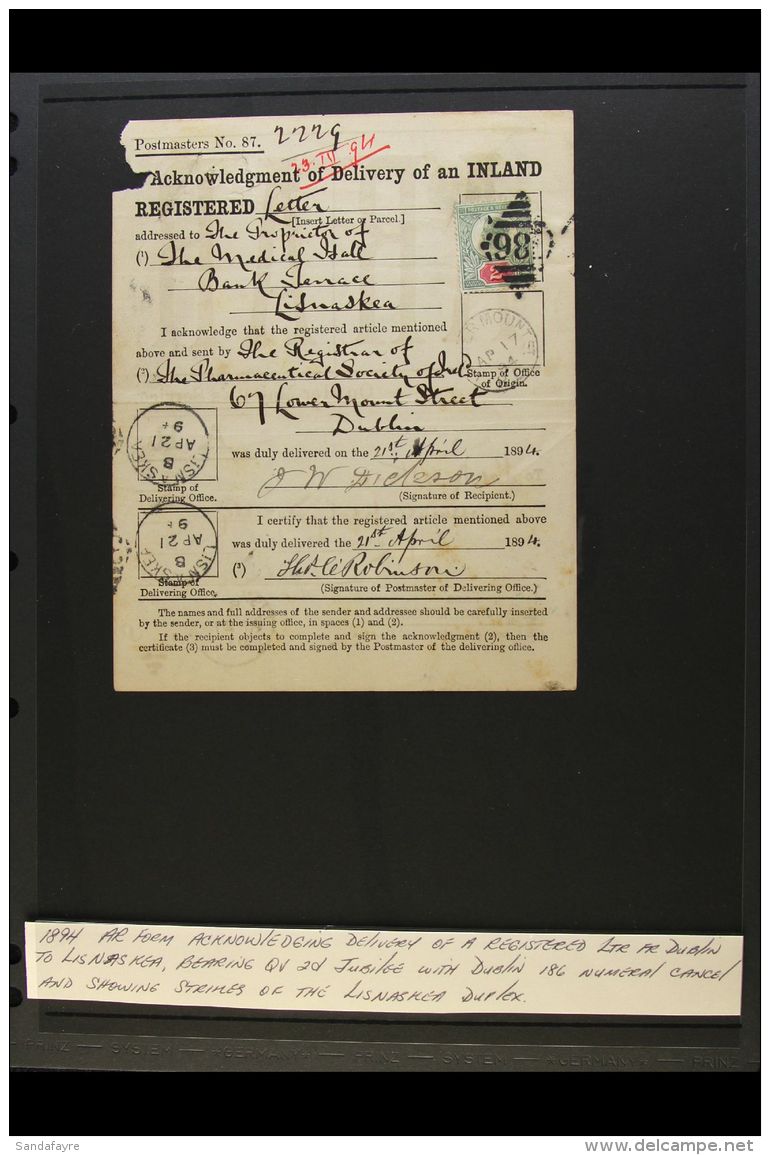 Postmasters No. 87. 2229
23. IV 94
Acknowledgment of Delivery of an INLAND
REGISTERED Letter
[Insert Letter or Parcel.]
addressed to The Proprietor of
(1) The Medical Hall
Bank Terrace
Lisnaskea
I acknowledge that the registered article mentioned
above and sent by The Registrar of
(2) The Pharmaceutical Society of Irel
67 Lower Mount Street
Dublin
98
MOUNT ST
AP 17
94
Stamp of Office
of Origin.
was duly delivered on the 21st April 1894.
J W Dickson
(Signature of Recipient.)
LISNASKEA
B
AP 21
94
Stamp of
Delivering Office.
I certify that the registered article mentioned above
was duly delivered the 21st April 1894.
(3) Robinson
(Signature of Postmaster of Delivering Office.)
LISNASKEA
B
AP 21
94
Stamp of
Delivering Office.
The names and full addresses of the sender and addressee should be carefully inserted
by the sender, or at the issuing office, in spaces (1) and (2).
If the recipient objects to complete and sign the acknowledgment (2), then the
certificate (3) must be completed and signed by the Postmaster of the delivering office.
1894 AR FORM ACKNOWLEDGING DELIVERY OF A REGISTERED LTR FR DUBLIN
TO LISNASKEA, BEARING QV 2d JUBILEE WITH DUBLIN 186 NUMERAL CANCEL
AND SHOWING STRIKES OF THE LISNASKEA DUPLEX.
PRINZ — SYSTEM — ☆GERMANY☆ — PRINZ — SYSTEM — ☆GERMANY☆ — PRINZ
Sandafayre
delcampe.net